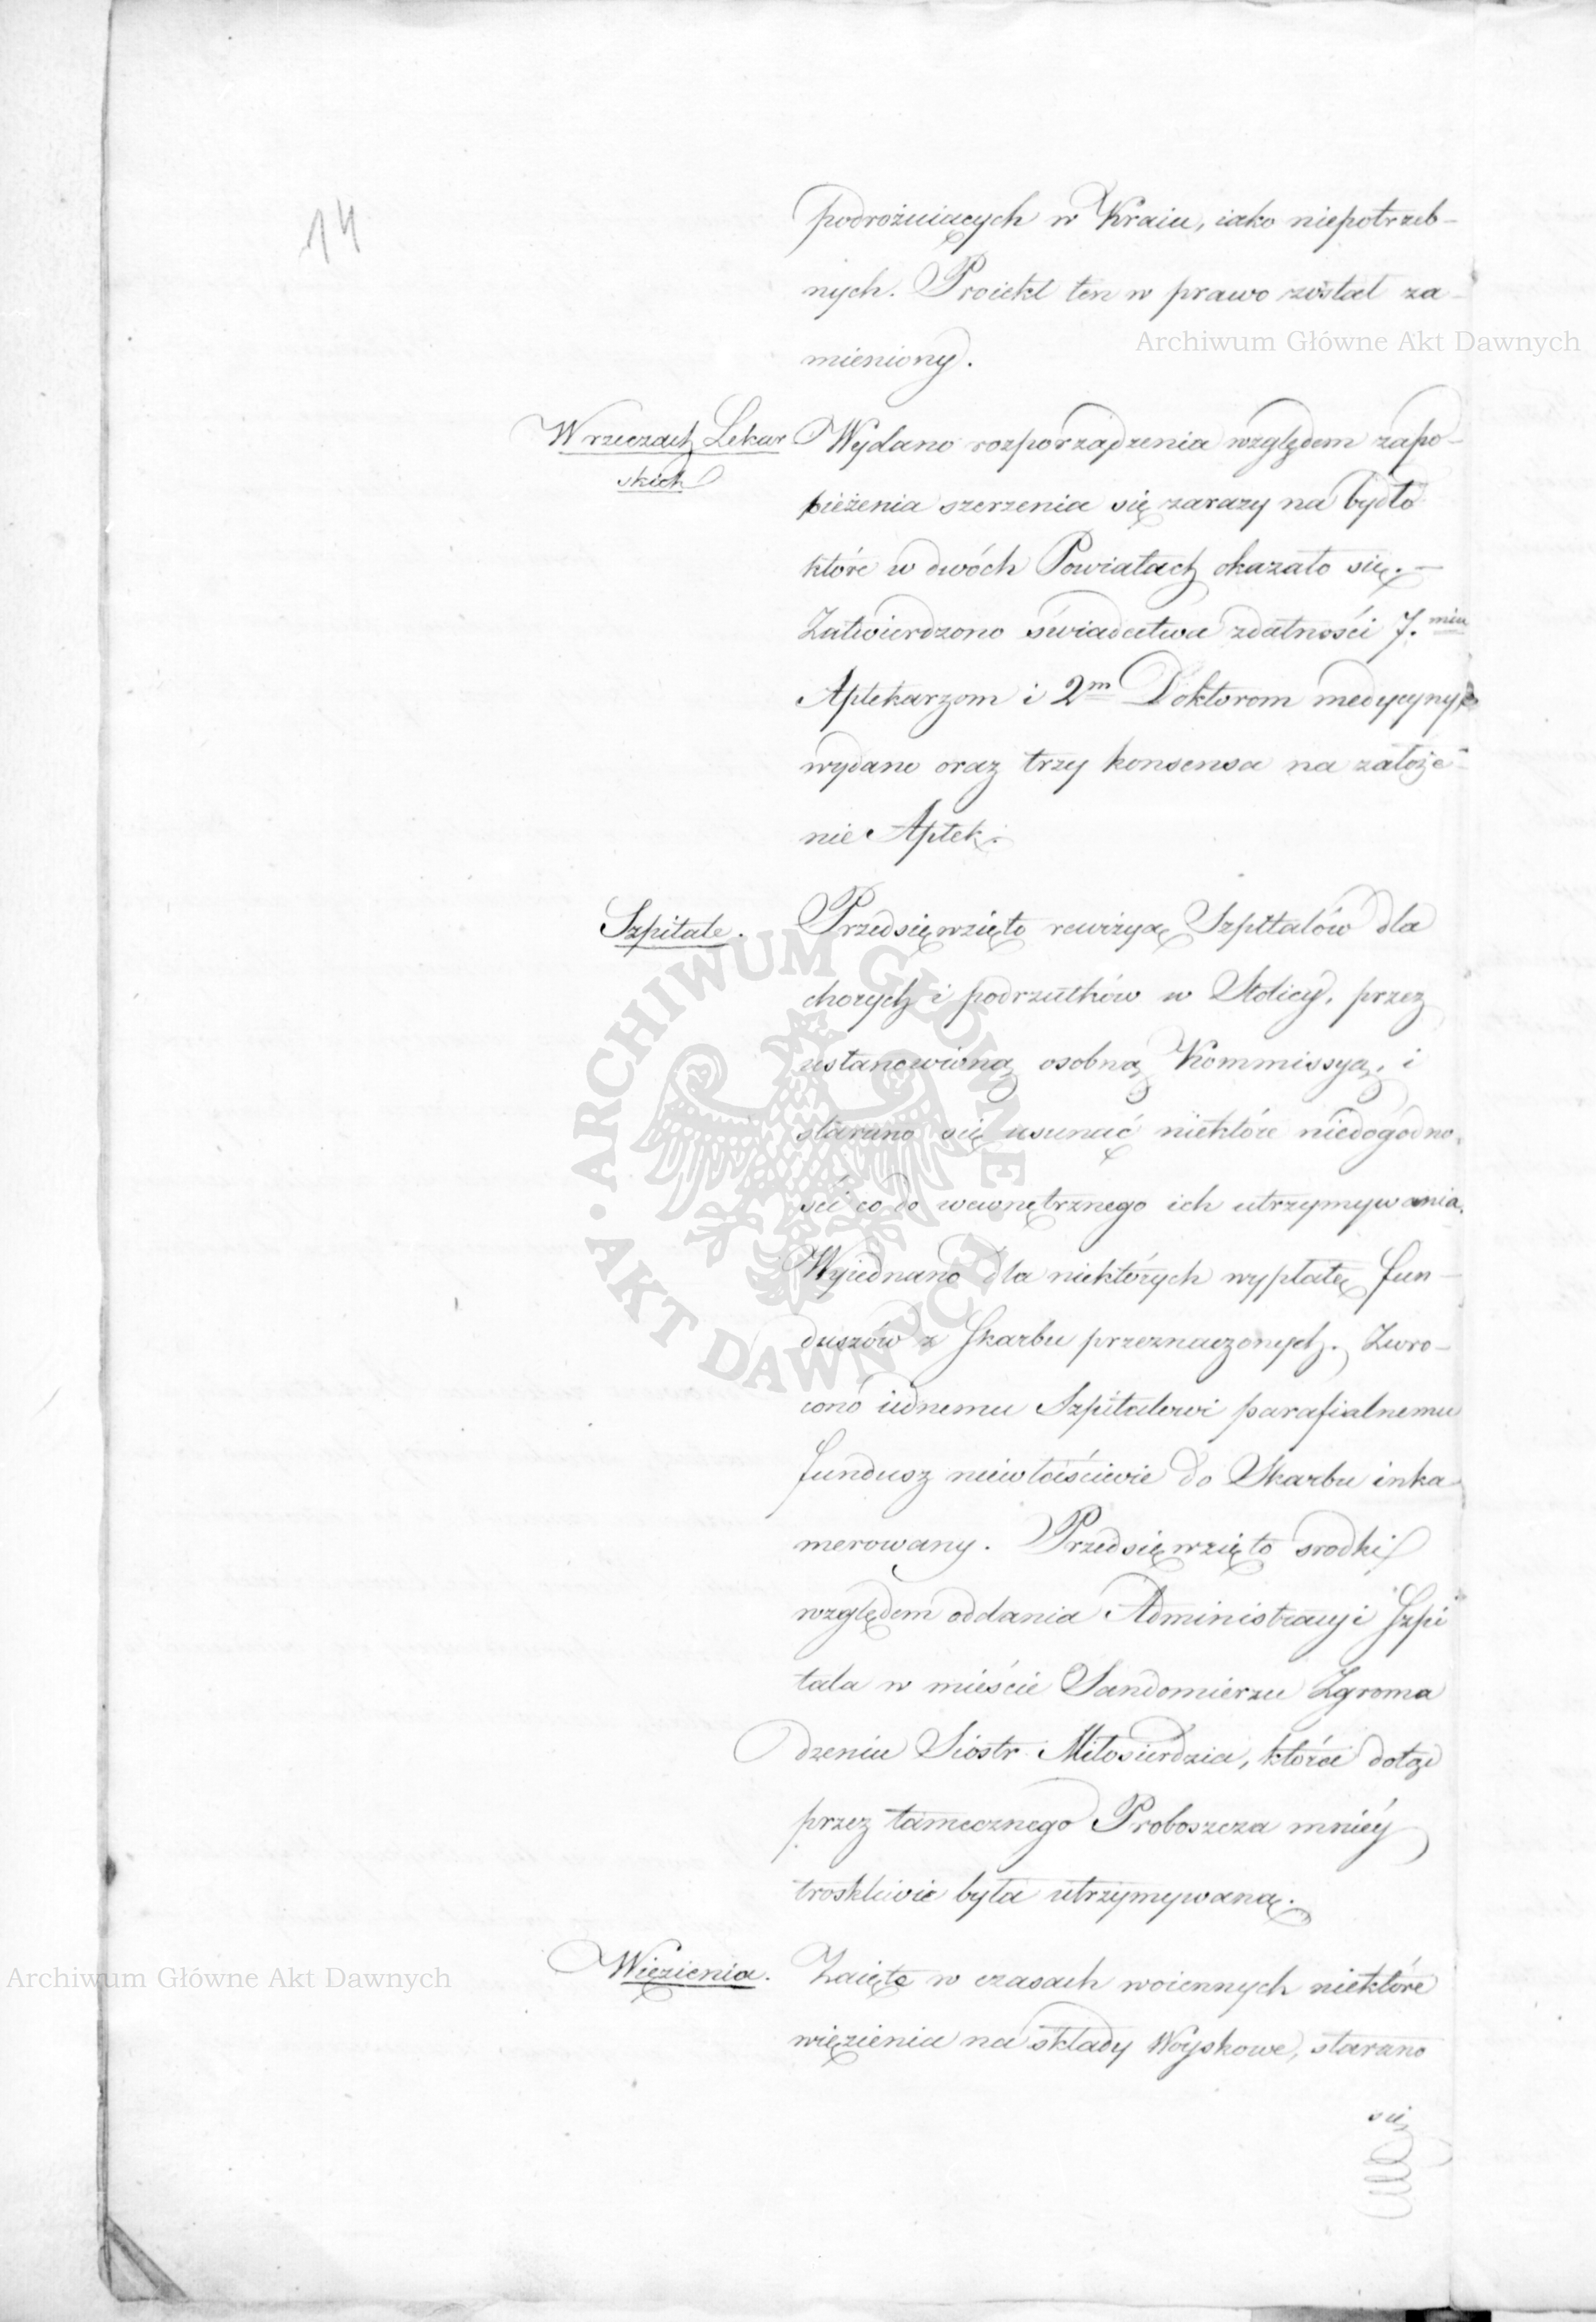 14
podrożuiących w Kraiu, iako niepotrzeb-
nych. Proiekt ten w prawo został za-
mieniony.
Archiwum Główne Akt Dawnych
W rzeczach Lekar
skich
Wydano rozporządzenia względem zapo-
bieżenia szerzenia się zarazy na bydło
które w dwóch Powiatach okazało się. —
Zatwierdzono świadectwa zdatności 7. miu
Aptekarzom i 2m Doktorom medycyny,
wydano oraz trzy konsensa na założe-
nie Aptek.
Szpitale.
Przedsięwzięto rewizyą Szpitalów dla
chorych i podrzutków w Stolicy, przez
ustanowioną osobną Kommissyą, i
starano się usunąć niektóre niedogodno-
ści co do wewnętrznego ich utrzymywania.
Wyiednano dla niektórych wypłatę fun-
duszów z Skarbu przeznaczonych. Zwro-
cono iednemu Szpitalowi parafialnemu
fundusz niewłaściwie do Skarbu inka-
merowany. Przedsięwzięto srodki
względem oddania Administracyi Szpi
tala w mieście Sandomierzu Zgroma
dzeniu Siostr Miłosierdzia, która dotąd
przez tamecznego Proboszcza mniéy
troskliwie była utrzymywaną.
Więzienia.
Zaięte w czasach woiennych niektóre
więzienia na składy Woyskowe, starano
się
Archiwum Główne Akt Dawnych
ARCHIWUM GŁÓWNE • AKT DAWNYCH •